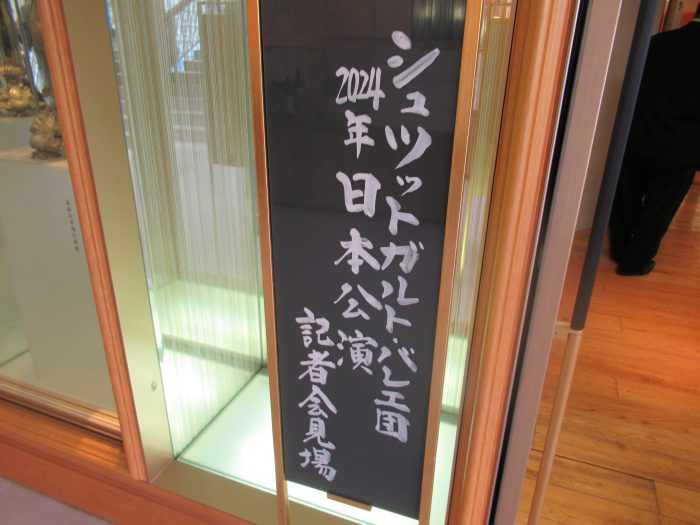 シュツットガルト・バレエ団
2024年 日本公演
記者会見場